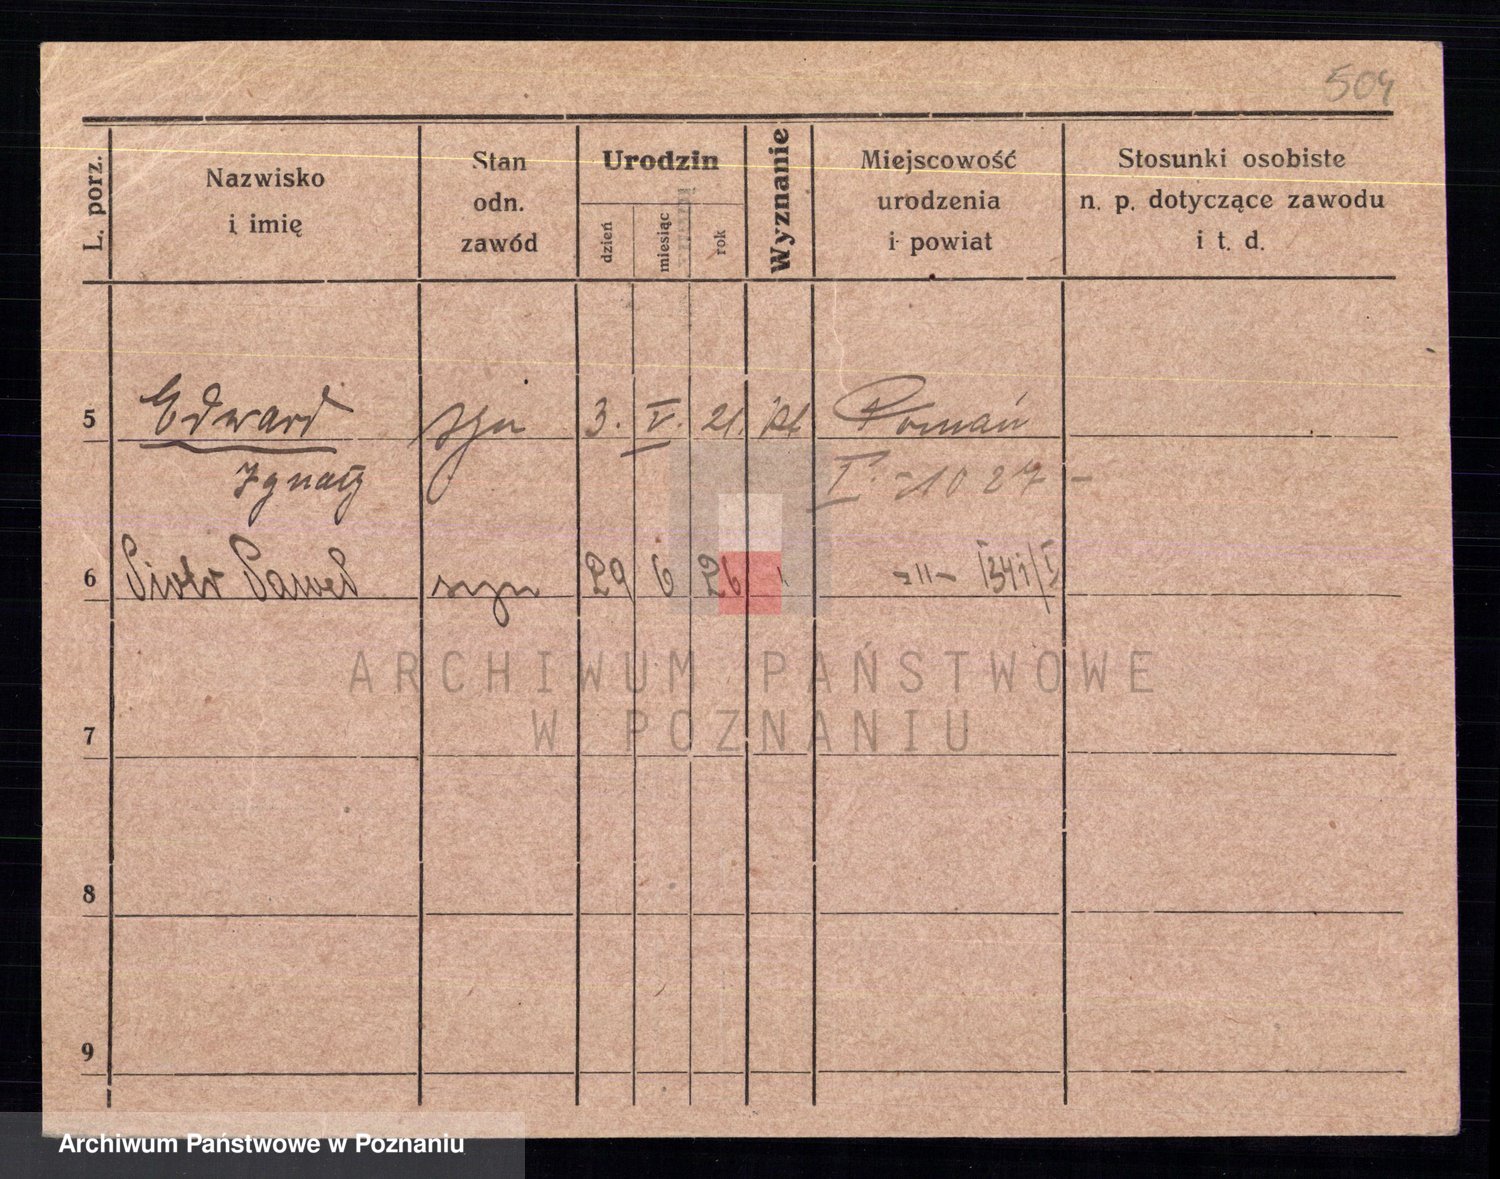 504
L. porz.
Nazwisko
i imię
Stan
odn.
zawód
Urodzin
dzień
miesiąc
rok
Wyznanie
Miejscowość
urodzenia
i powiat
Stosunki osobiste
n. p. dotyczące zawodu
i t. d.
5 Edward syn 3. V. 21. kt Poznań
Ignacy I. -1027-
6 Piotr Paweł syn 29 6 26 -"- 1341/I
ARCHIWUM PAŃSTWOWE
W POZNANIU
7
8
9
Archiwum Państwowe w Poznaniu